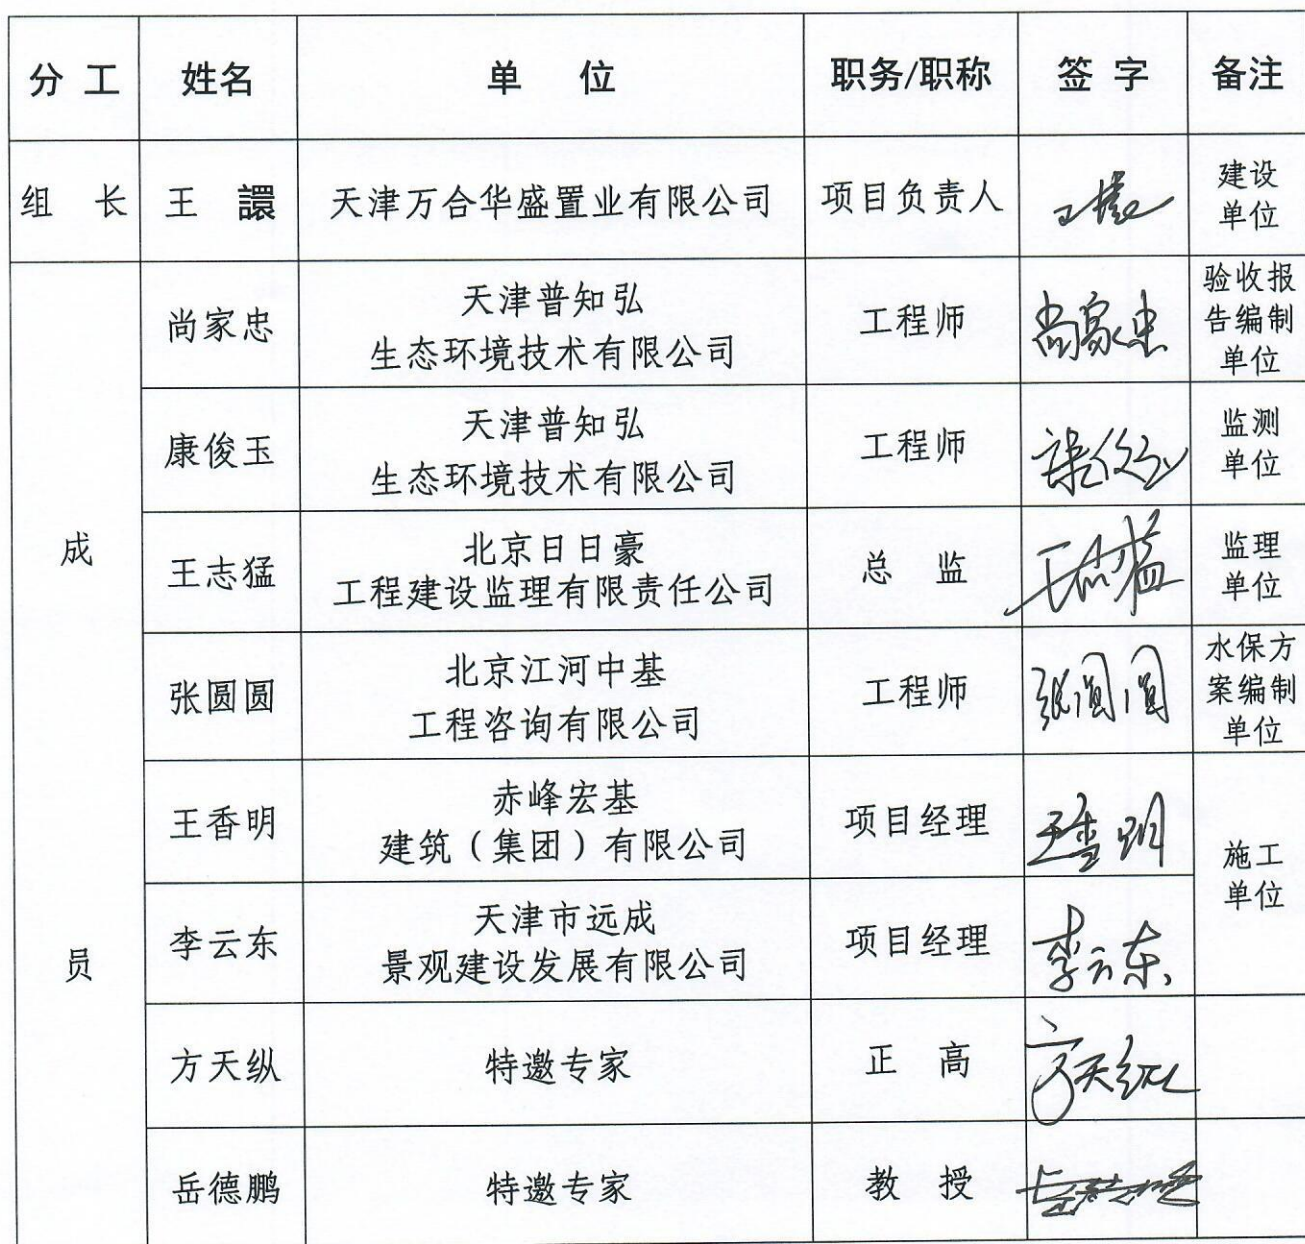 分 工 姓名 单 位 职务/职称 签 字 备注
组 长 王 譞 天津万合华盛置业有限公司 项目负责人 建设
单位
成
员
尚家忠 天津普知弘
生态环境技术有限公司 工程师 尚家忠 验收报
告编制
单位
康俊玉 天津普知弘
生态环境技术有限公司 工程师 康俊玉 监测
单位
王志猛 北京日日豪
工程建设监理有限责任公司 总 监 王志猛 监理
单位
张圆圆 北京江河中基
工程咨询有限公司 工程师 张圆圆 水保方
案编制
单位
王香明 赤峰宏基
建筑（集团）有限公司 项目经理 王香明 施工
单位
李云东 天津市远成
景观建设发展有限公司 项目经理 李云东
方天纵 特邀专家 正 高 方天纵
岳德鹏 特邀专家 教 授 岳德鹏